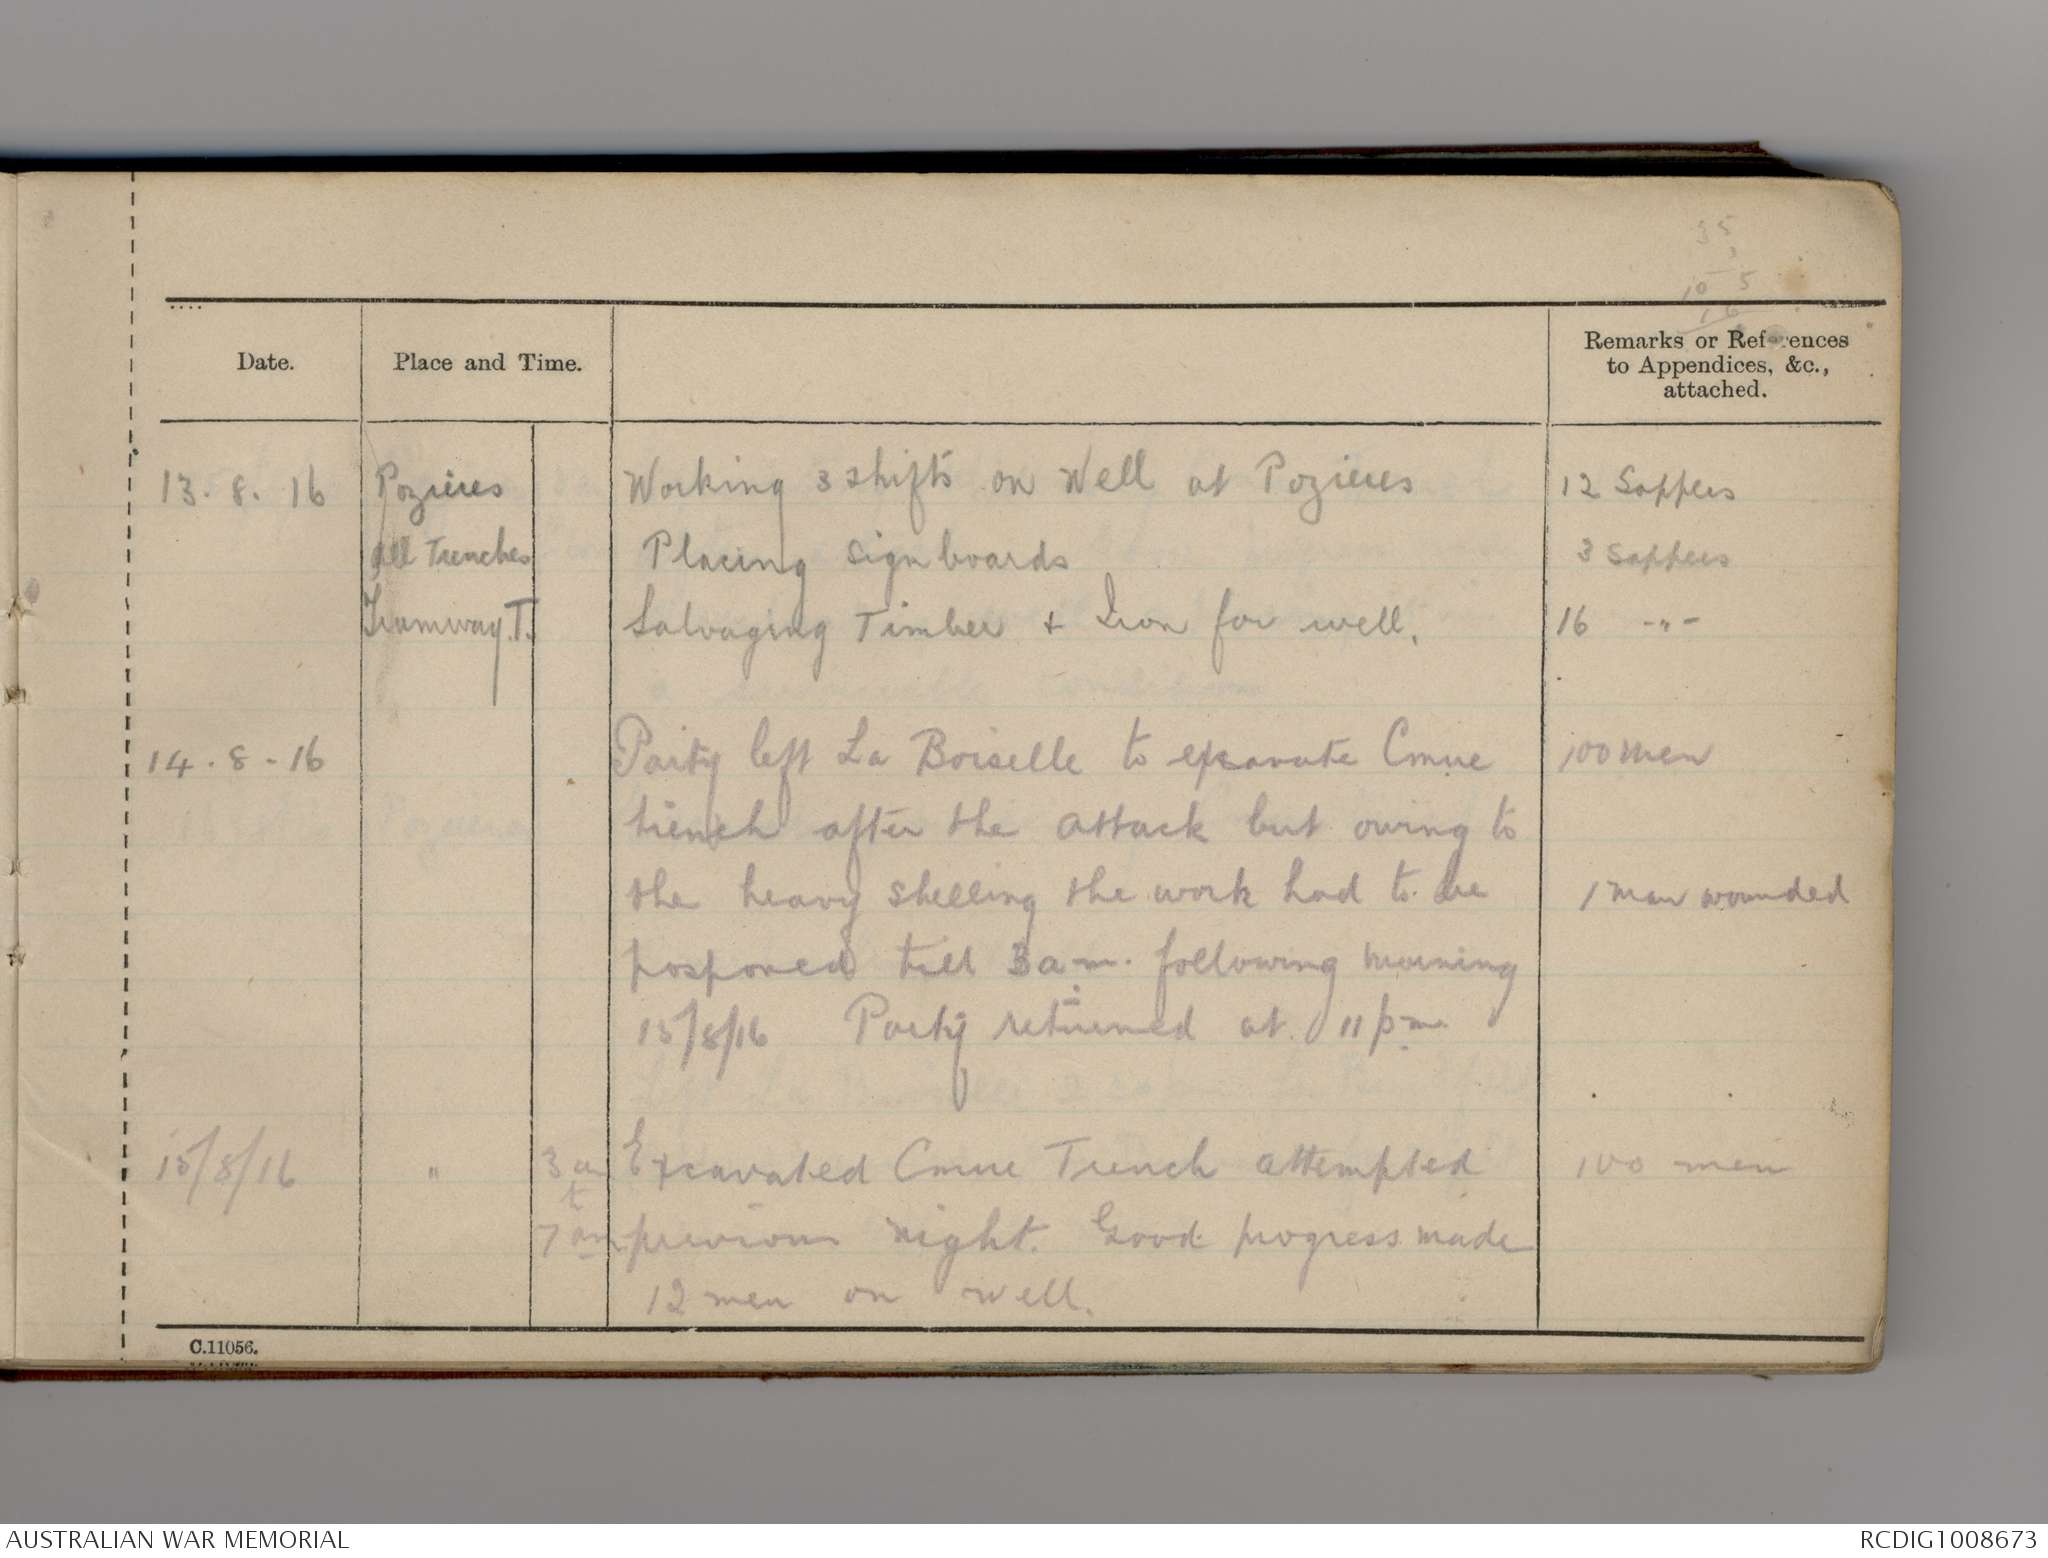 35
3
10 5
16
Date. Place and Time. Remarks or References
to Appendices, &c.,
attached.
13.8.16 Pozieres Working 3 shifts on Well at Pozieres 12 Sappers
All Trenches Placing sign boards 3 Sappers
Tramway.T. Salvaging Timber + Iron for well. 16 -"-
14.8.16 Party left La Boiselle to excavate Cmne 100 men
trench after the attack but owing to
the heavy shelling the work had to be 1 man wounded
posponed till 3 a.m. following morning
15/8/16 Party returned at 11 pm
15/8/16 " 3 am Excavated Cmne Trench attempted 100 men
to
7 am previous night. Good progress made
12 men on well.
C.11056.
AUSTRALIAN WAR MEMORIAL RCDIG1008673